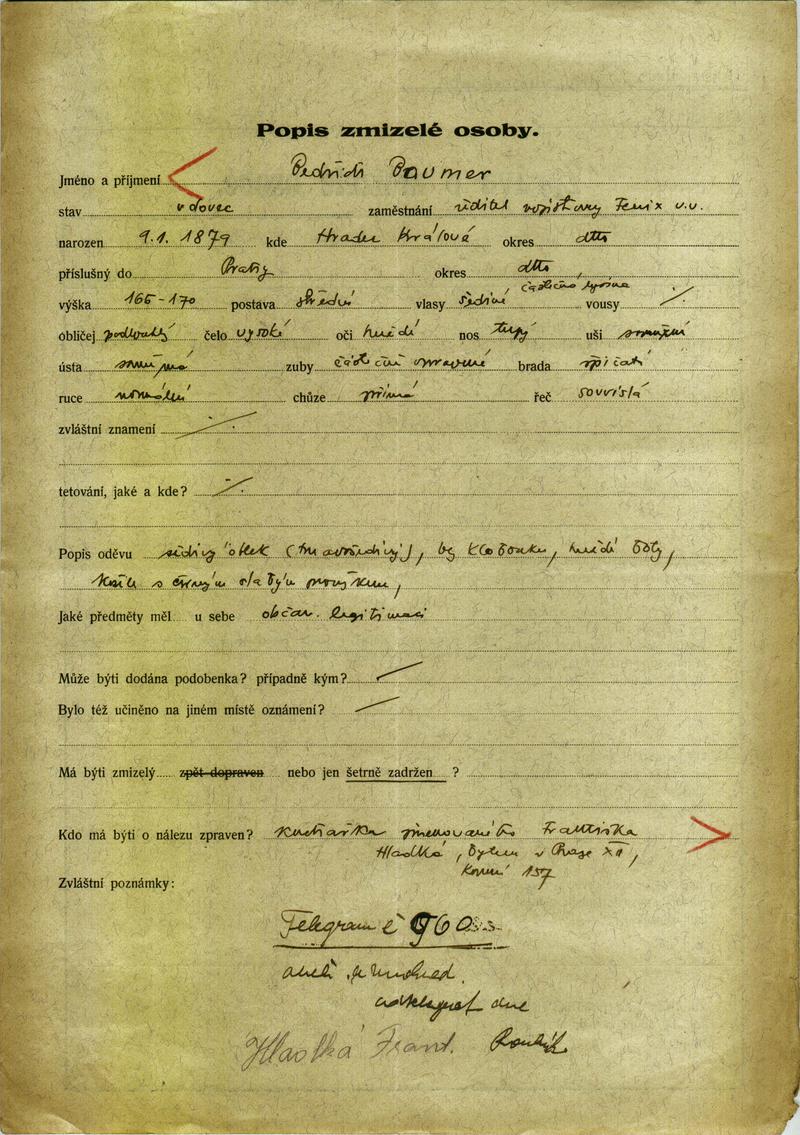 Popis zmizelé osoby.
Jméno a příjmení Baumer
stav vdovec zaměstnání ředitel pojišťovny Fenix v.v.
narozen 9.1. 1879 kde Hradec Králové okres dtto
příslušný do Prahy okres dtto
částečně lysina
výška 165-170 postava střední vlasy šedivé, vousy ./.
obličej podlouhlý čelo vysoké oči hnědé nos tupý uši normální
ústa zuby částečně opravené brada špičatá
ruce normální chůze přímá řeč souvislá
zvláštní znamení ./.
tetování, jaké a kde? ./.
Popis oděvu šedivý oblek (tmavošedivý), bez klobouku, hnědé boty,
košile s černým slabým proužkem,
Jaké předměty měl u sebe občan. legitimaci
Může býti dodána podobenka? případně kým? /
Bylo též učiněno na jiném místě oznámení? /
Má býti zmizelý zpět dopraven nebo jen šetrně zadržen ?
Kdo má býti o nálezu zpraven? kuchařka jmenovaného Františka
Hladká, bytem v Praze XII,
157
Zvláštní poznámky:
Telegram č 960
dne
Hladká Frant.